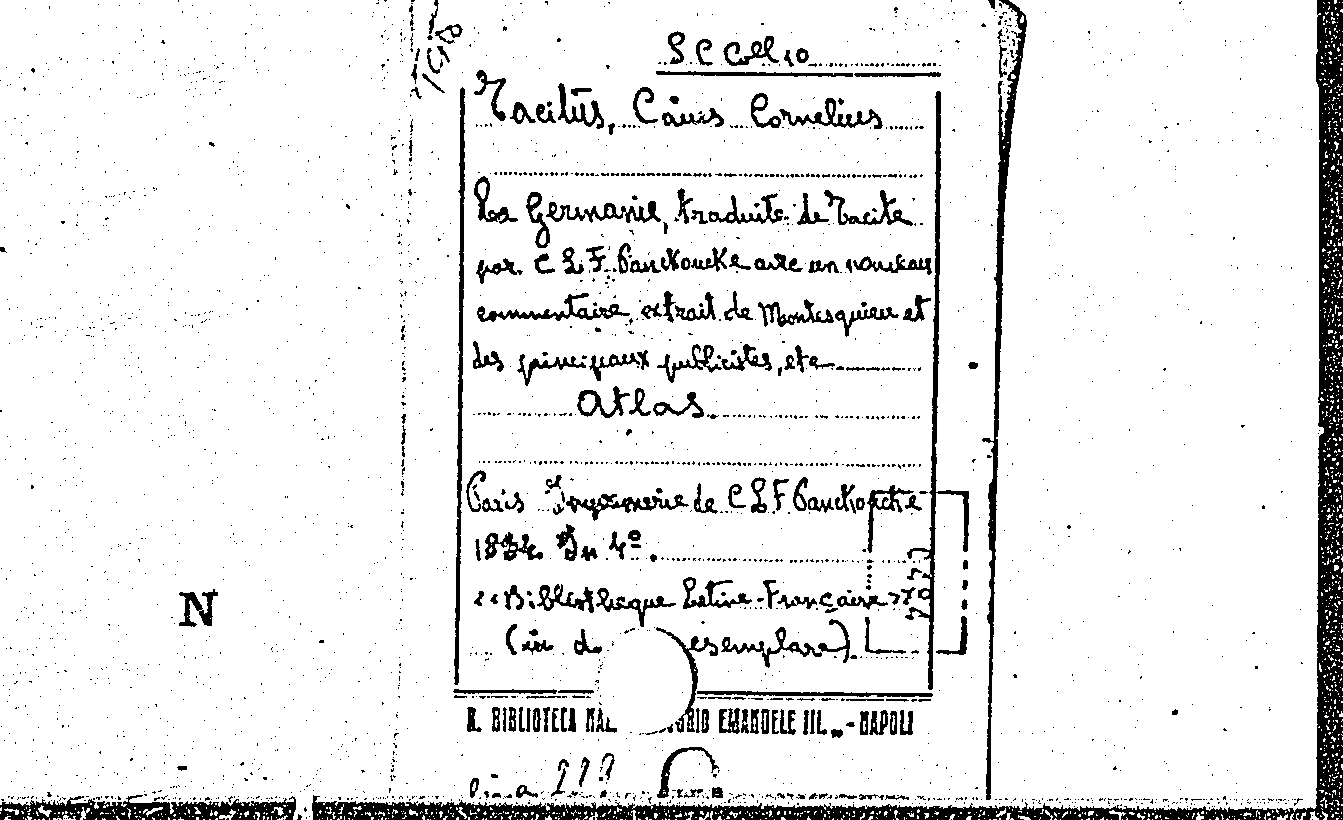 S C Coll 10
Tacitus, Caius Cornelius
La Germanie, traduite de Tacite
par C L F Panckoucke avec un nouveau
commentaire, extrait de Montesquieu et
des principaux publicistes, etc
Atlas.
Paris Imprimerie de C L F Panckoucke
In 4º.
«Bibliothèque Latine-Française»
(in esemplare).
R. BIBLIOTECA EMANUELE III. - NAPOLI
N